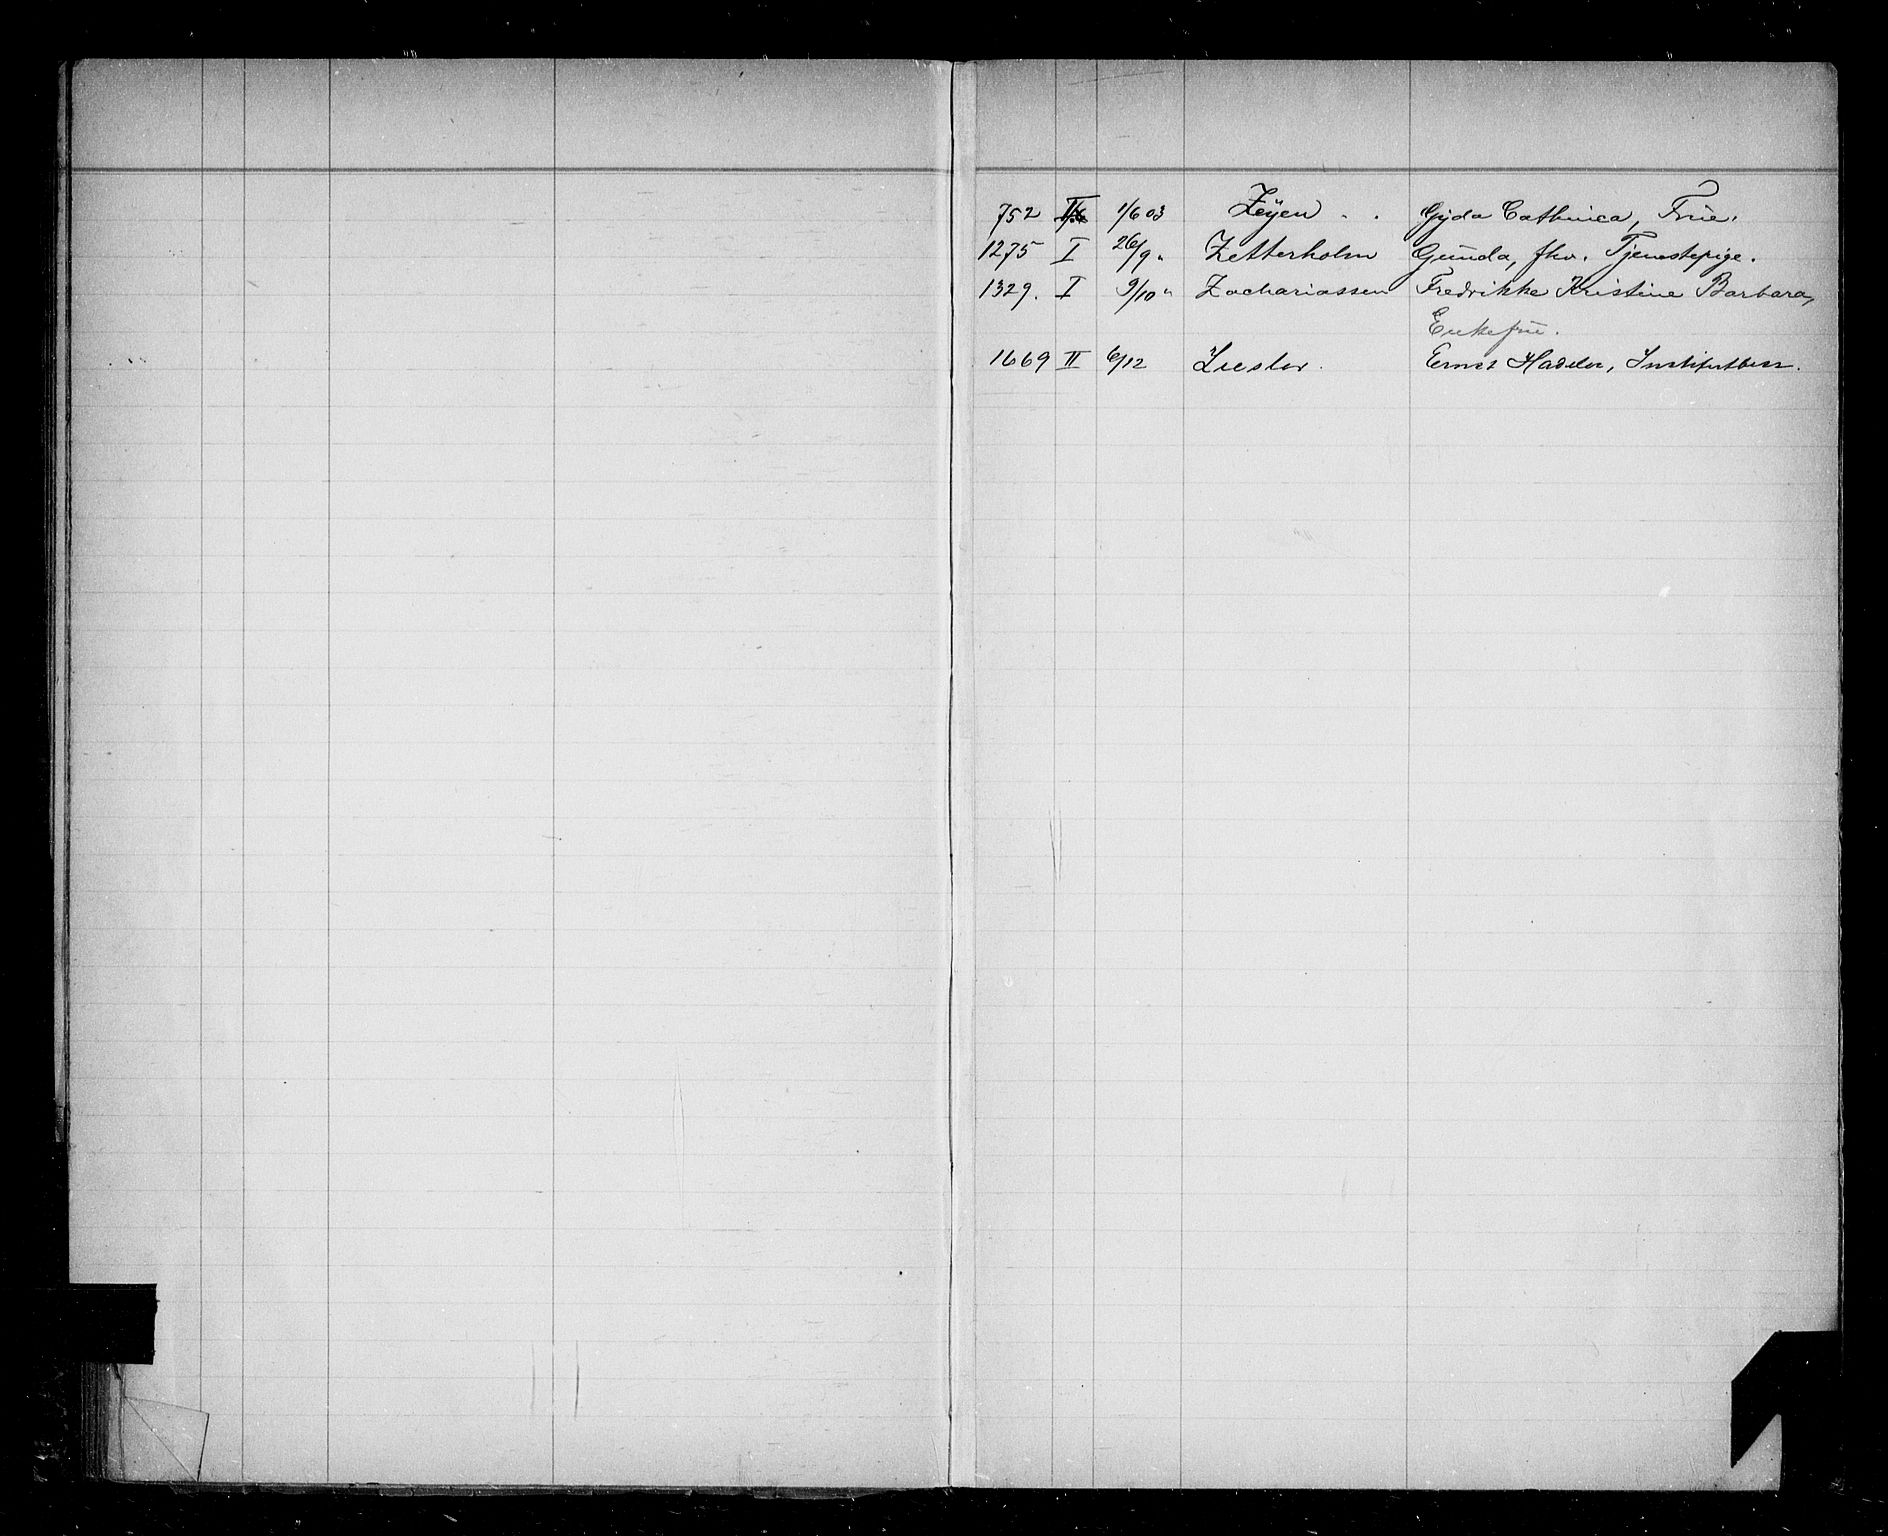 752 II 1/6 03 Zeÿen . . Gyda Cathinca, Frue.
1275 I 26/9 " Zetterholm Gunda, fhv. Tjenestepige.
1329. I 9/10 " Zachariassen Fredrikke Kristine Barbara,
Enkefrue.
1669 II 6/12 Ziesler. Ernst